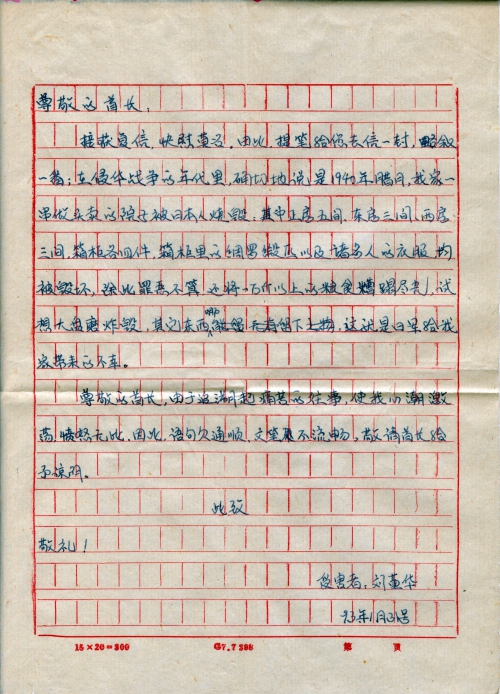 尊敬的首长，
接获负信，快慰莫名，由此，提笔给你去信一封，略叙
一翻：在侵华战争的年代里，确切地说是1940年腊月，我家一
串做买卖的院子被日本人烧毁，其中上房五间，东房三间，西房
三间，箱柜各四件，箱柜里的绸罗缎匹以及诸多人的衣服均
被毁坏，除此罪恶不算，还将一万斤以上的粮食糟蹋尽光，试
想大鱼磨炸毁，其它东西哪能留有留下之物，这就是日军给我
家带来的不幸。
尊敬的首长，由于追溯起痛苦的往事，使我心潮激
荡，愤怒无比，因此，语句欠通顺，文笔不流畅，敬请首长给
予谅阴。
此致
敬礼！
受害者：刘董华
93年1月31号
15×20=300 G7.7 398 第 页